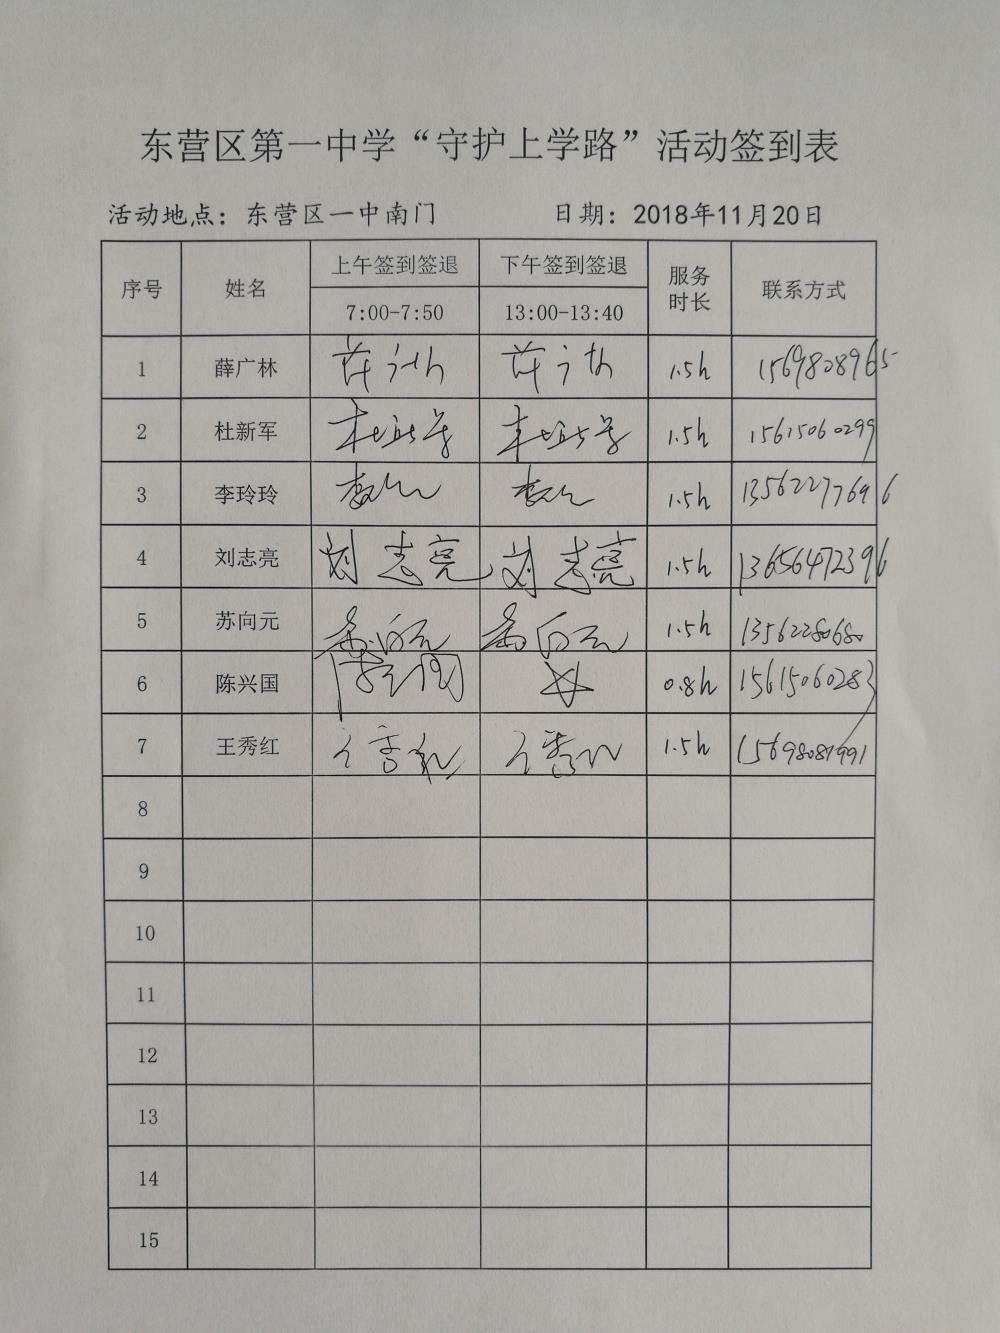 东营区第一中学“守护上学路”活动签到表
活动地点：东营区一中南门 日期：2018年11月20日
序号 姓名 上午签到签退 下午签到签退 服务时长 联系方式
7:00-7:50 13:00-13:40
1 薛广林 薛广林 薛广林 1.5h 1569808965
2 杜新军 杜新军 杜新军 1.5h 15615060299
3 李玲玲 李玲玲 李玲玲 1.5h 13562277696
4 刘志亮 刘志亮 刘志亮 1.5h 13656472396
5 苏向元 苏向元 苏向元 1.5h 13562280680
6 陈兴国 陈兴国 0.8h 15615060283
7 王秀红 王秀红 王秀红 1.5h 15698081991
8
9
10
11
12
13
14
15